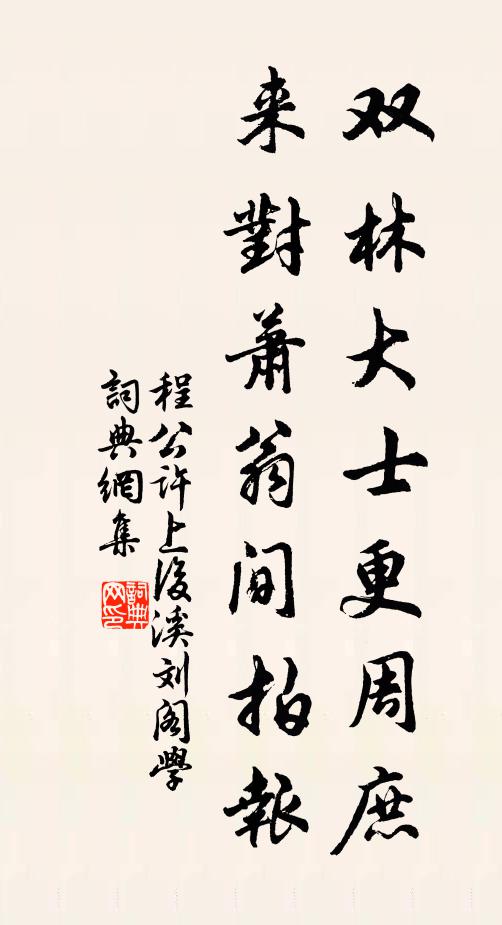 双林大士更周庶
来對蕭翁间拍報
程公许上後溪刘阁學
詞典網集
詞典网印